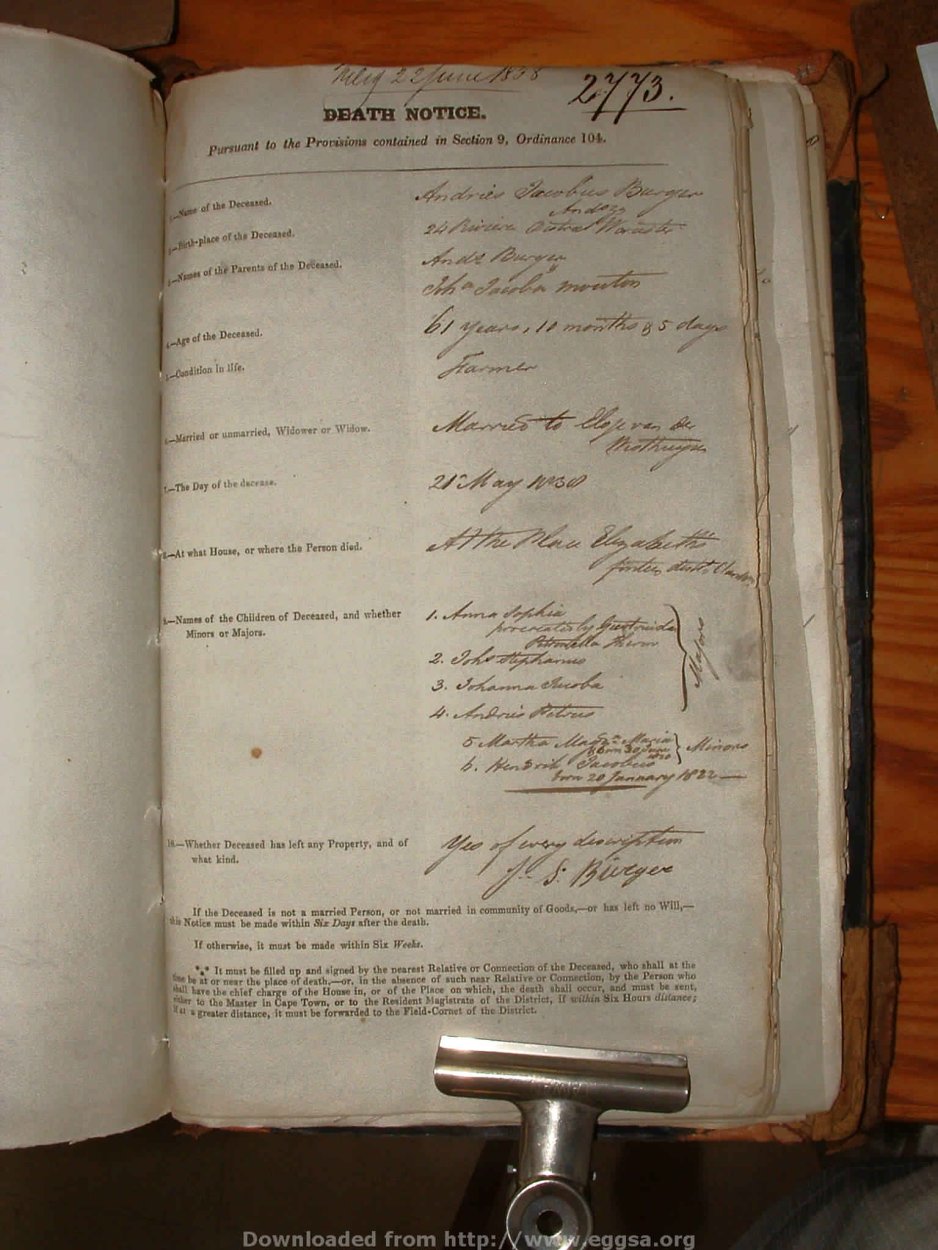 22 June 1838
2773.
DEATH NOTICE.
Pursuant to the Provisions contained in Section 9, Ordinance 104.
1.—Name of the Deceased. Andries Jacobus Burger
Andrz
2.—Birth-place of the Deceased. 24 Riviere District Worcester
3.—Names of the Parents of the Deceased. Andz Burger
Joha Jacoba mouton
4.—Age of the Deceased. 61 years, 10 months & 5 days
5.—Condition in life. Farmer
6.—Married or unmarried, Widower or Widow. Married to Elsje van der
Westhuyzen
7.—The Day of the decease. 21st May 1838
8.—At what House, or where the Person died. At the Place Elizabeth's
fontein, distt Clanw
9.—Names of the Children of Deceased, and whether
Minors or Majors.
1. Anna Sophia
procreated by Geertruida
Petronella Theron
2. Johs Stephanus
3. Johanna Jacoba
4. Andries Petrus
Majors
5 Martha Magda Maria
born 30 June
1820
Minors
6. Hendrik Jacobus
born 20 January 1822
10.—Whether Deceased has left any Property, and of
what kind.
Yes of every description
J. S. Burger
If the Deceased is not a married Person, or not married in community of Goods,—or has left no Will,—
this Notice must be made within Six Days after the death.
If otherwise, it must be made within Six Weeks.
*** It must be filled up and signed by the nearest Relative or Connection of the Deceased, who shall at the
time be at or near the place of death,—or, in the absence of such near Relative or Connection, by the Person who
shall have the chief charge of the House in, or of the Place on which, the death shall occur, and must be sent,
either to the Master in Cape Town, or to the Resident Magistrate of the District, if within Six Hours distance;
if at a greater distance, it must be forwarded to the Field-Cornet of the District.
Downloaded from http://www.eggsa.org